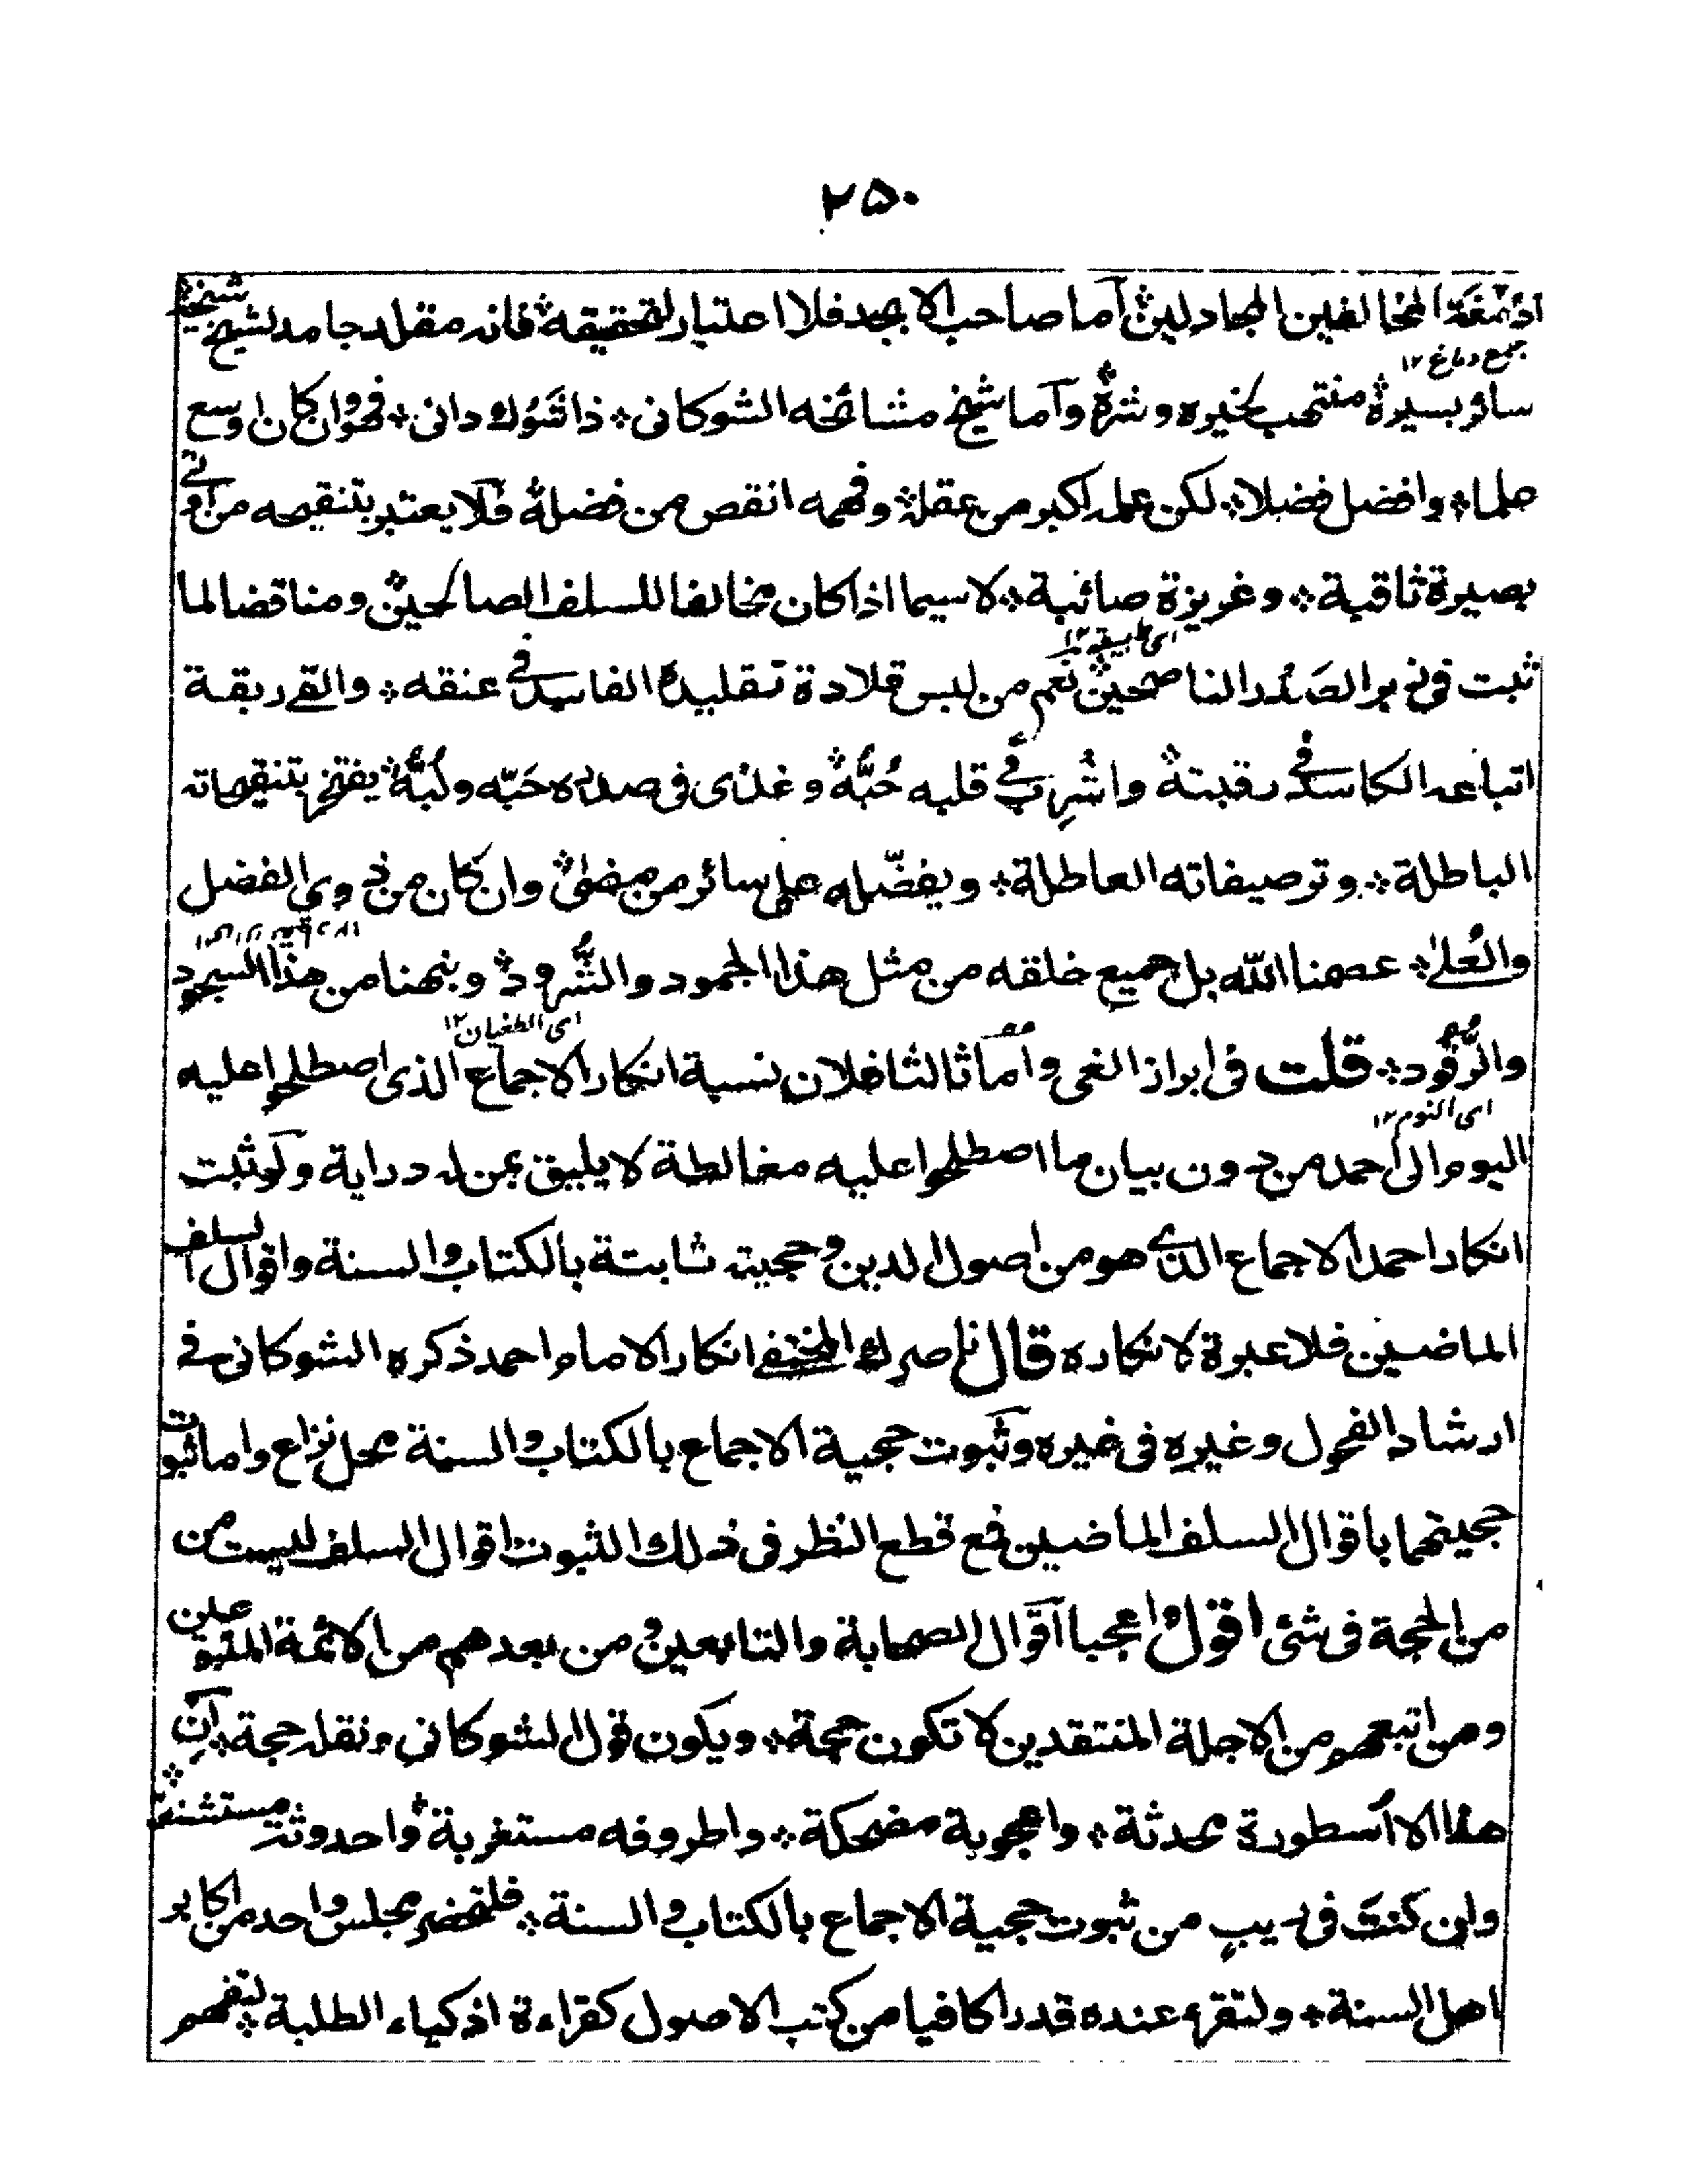 ٢٥٠
ادمغة المخالفين المجادلين ۞ أما صاحب الابجد فلا اعتبار لتحقيقه ۞ فانه مقلد جامد لشيخ شيخه
جمع دماغ ١٢
سائر بسيرة ۞ منتهب لخيره وشره ۞ وأما شيخ مشائخه الشوكانى ۞ ذا شوك دانى ۞ فهو وان كان اوسع
علما ۞ وافضل فضلا ۞ لكن علمه اكبر من عقله ۞ وفهمه انقص من فضله ۞ فلا يعتبر بتنقيحه من أوتى
بصيرة ثاقبة ۞ وغريزة صائبة ۞ لا سيما اذا كان مخالفا للسلف الصالحين ۞ ومناقضا لما
اى طبيعة ١٢
ثبت فى زبر الصدر الناصحين ۞ نعم من لبس قلادة تقليده الفاسد فى عنقه ۞ والقى ربقة
اتباعه الكاسد فى رقبته ۞ واشرب فى قلبه حُبُّه ۞ وغذى فى صدره حَبّه ولُبُّه ۞ يفتخر بتنقيحاته
الباطلة ۞ وترصيفاته العاطلة ۞ ويفضّله على سائر من مضى ۞ وان كان من ذوى الفضل
والعُلىٰ ۞ عصمنا الله بل جميع خلقه من مثل هذا الجمود والشُّرود ۞ ونبهنا من هذا السجود
اى الطغيان ١٢
والرُّقود ۞ قلت فى ابراز الغى وأما ثالثا فلان نسبة انكار الاجماع الذى اصطلحوا عليه
اى النوم ١٢
اليوم الى احمد من دون بيان ما اصطلحوا عليه مغالطة لا يليق بمن له دراية ولو ثبت
انكار احمد الاجماع الذى هو من اصول الدين وحجيته ثابتة بالكتاب والسنة واقوال السلف
الماضين فلا عبرة لانكاره قال ناصرك المختفى انكار الامام احمد ذكره الشوكانى فى
ارشاد الفحول وغيره فى غيره وثبوت حجية الاجماع بالكتاب والسنة محل نزاع واما ثبوت
حجيتهما باقوال السلف الماضين فمع قطع النظر فى ذلك الثبوت اقوال السلف ليست من
من الحجة فى شئ اقول واعجبا أقوال الصحابة والتابعين ومن بعدهم من الائمة المتبوعين
ومن اتبعهم من الاجلة المنتقدين لا تكون حجة ۞ ويكون قول الشوكاني ونقله حجة ۞ ان
هذا الا أسطورة محدثة ۞ واعجوبة مضحكة ۞ واطروفه مستغربة ۞ واحدوثة مستشنعة ۞
وان كنت فى ريب من ثبوت حجية الاجماع بالكتاب والسنة ۞ فلتحضر مجلس واحد من اكابر
اهل السنة ۞ ولتقرء عنده قدرا كافيا من كتب الاصول كقراءة اذكياء الطلبة ۞ لتفهم